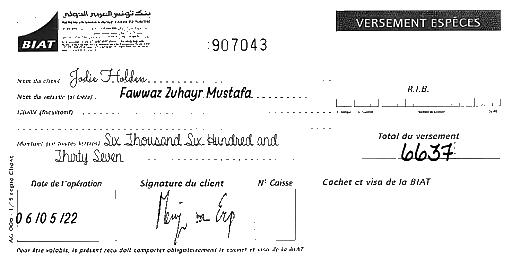 بنك تونس العربي الدولي
BIAT
:907043
VERSEMENT ESPÈCES
Nom du client Jodie Holden
Fawwaz Zuhayr Mustafa
R.I.B.
Libellé (facultatif)
Montant (en toutes lettres) Six Thousand Six Hundred and
Thirty Seven
Total du versement
6637
Date de l'opération
Signature du client
N° Caisse
Cachet et visa de la BIAT
06/05/22
Pour être valable, le présent reçu doit comporter obligatoirement le cachet et visa de la BIAT